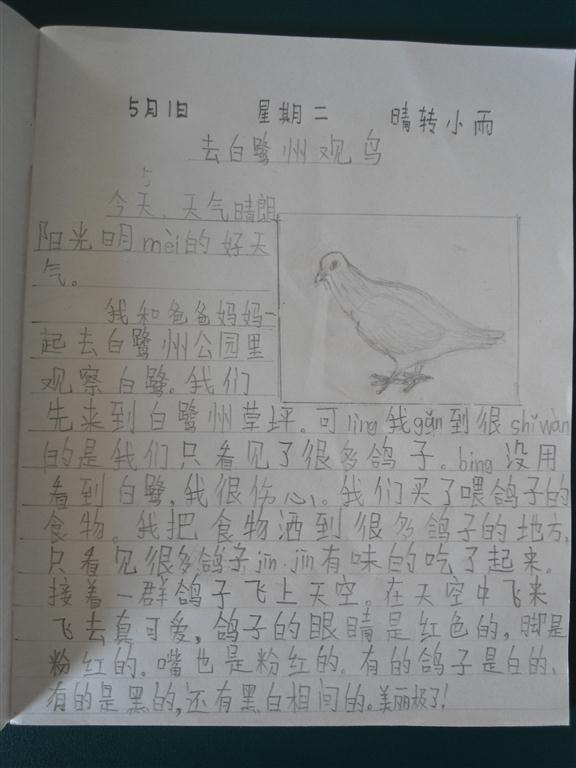 5月1日 星期二 晴转小雨
去白鹭州观鸟
今天、天气晴朗,
阳光明mèi的好天
气。
我和爸爸妈妈一
起去白鹭州公园里
观察白鹭。我们
先来到白鹭州草坪。可jīng我gǎn到很shīwàn
的是我们只看见了很多鸽子。bìng没用
看到白鹭,我很伤心。我们买了喂鸽子的
食物。我把食物洒到很多鸽子的地方,
只看见很多鸽子jīn jīn有味的吃了起来。
接着一群鸽子飞上天空。在天空中飞来
飞去真可爱,鸽子的眼睛是红色的,脚是
粉红的。嘴也是粉红的。有的鸽子是白的、
有的是黑的,还有黑白相间的。美丽极了!